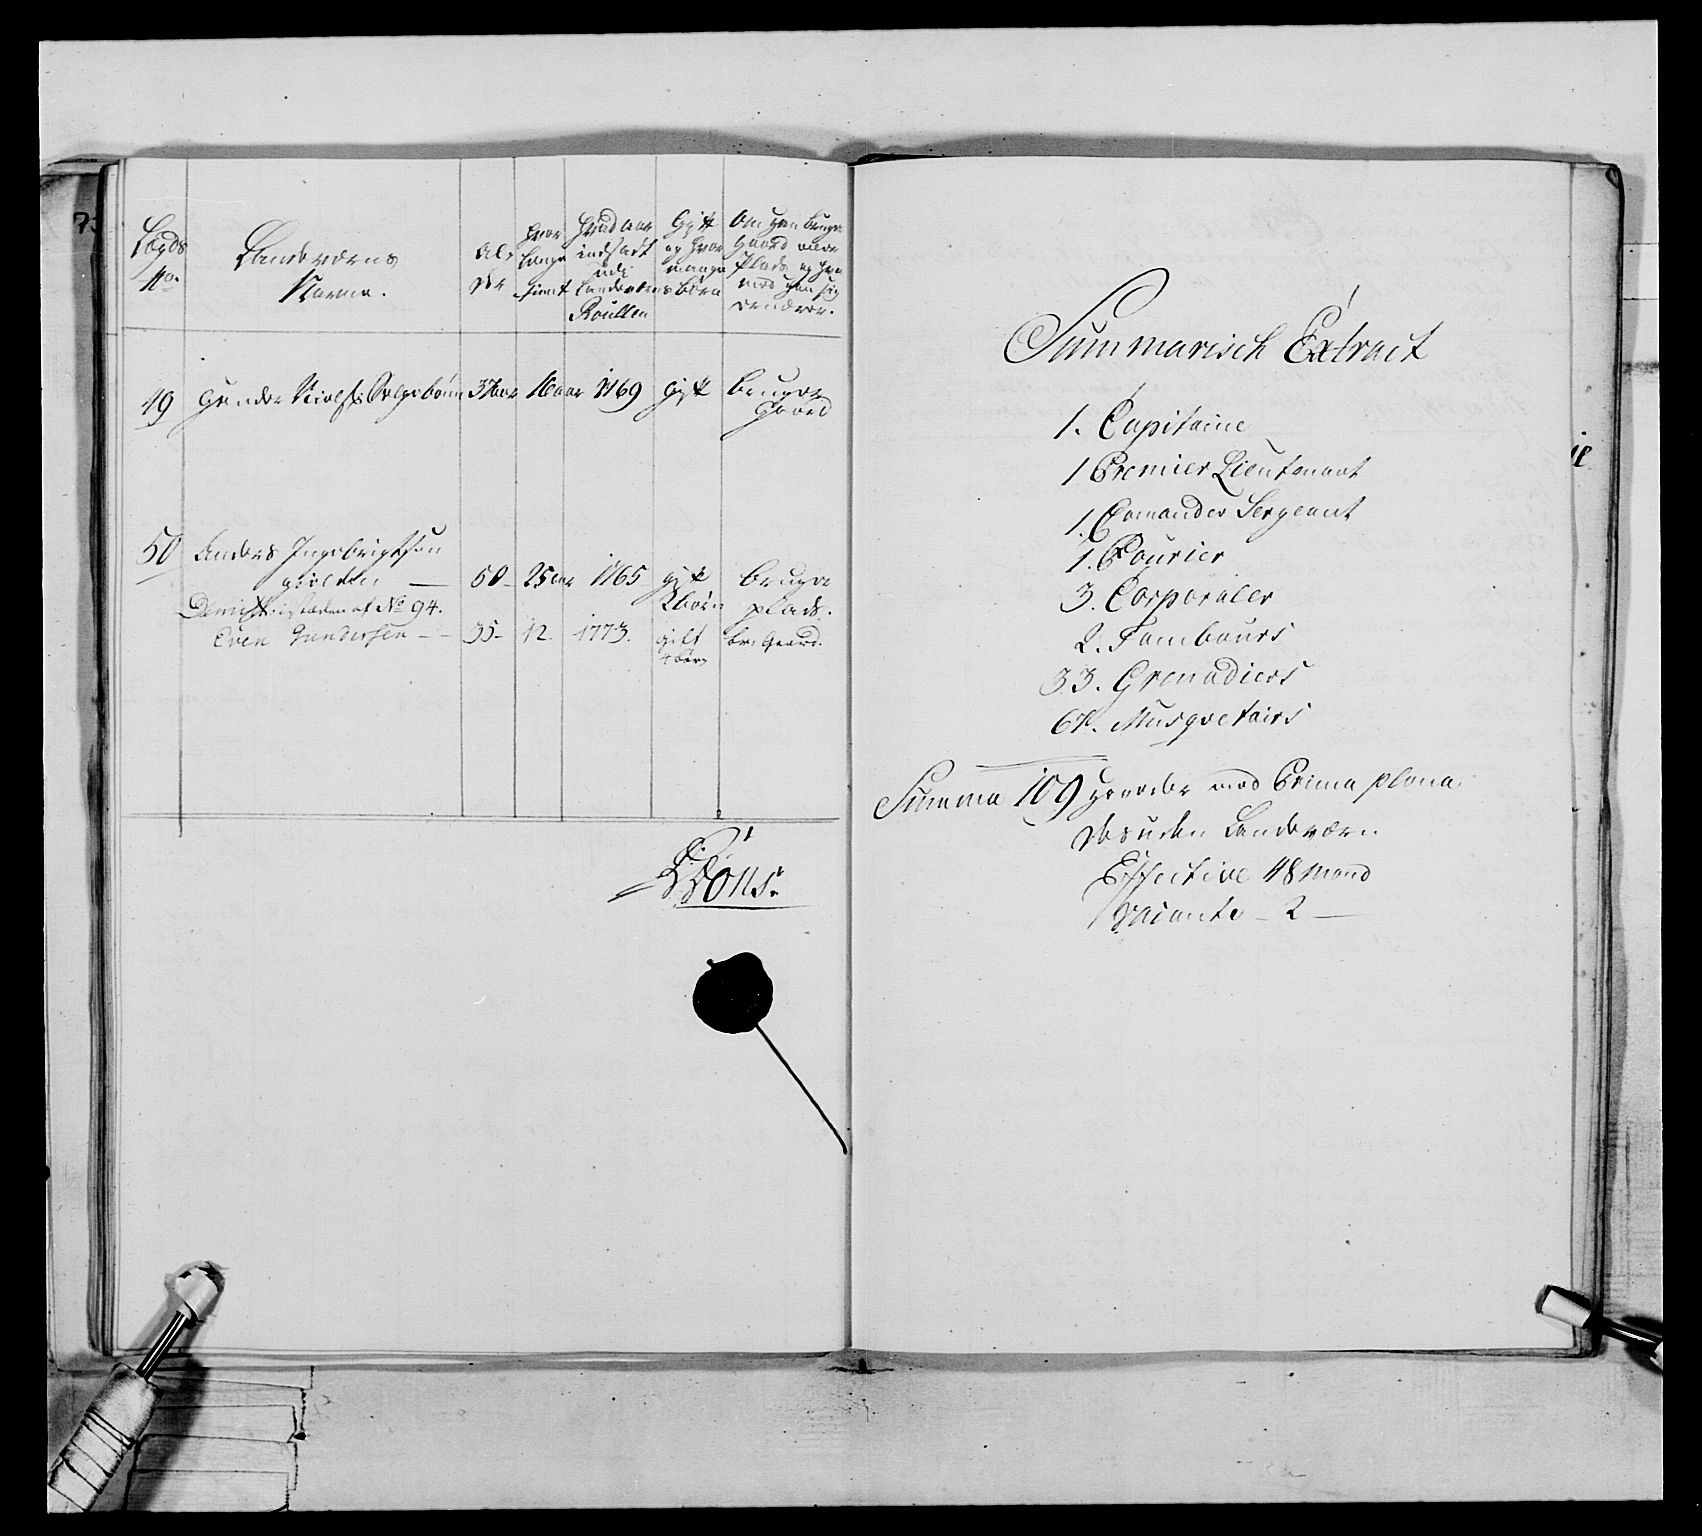 Lægds
No.
Landeværns
Navne.
Al,
der
hvor
længe
tient
Hvad aar
indsadt
udi
Landeværns
Roullen
Gift
og hvor
mange
børn
Om han bruger
Gaard eller
Plads og hvor
med han sig
ernærer.
49 Gunder Nielss: 37 aar 16 aar 1769 gift bruger
Gaard
50 Anders Ingebrigtsen
50 - 25 aar 1765 gift bruger
2 børn plads.
istæden af No 94.
Even Gundersen - 35 - 12. 1773. gift br: Gaard.
4 børn
Summarisch Extract
1. Capitaine
1 Premier Lieutenant
1. Comander Sergeant
1. Fourier
3. Corporaler
2. Tambours
33. Grenadiers
67. Musqvetairs
Summa 109 hoveder med Prima plana
desuden Landeværn
Effective 48 Mand
Vacante - 2 -